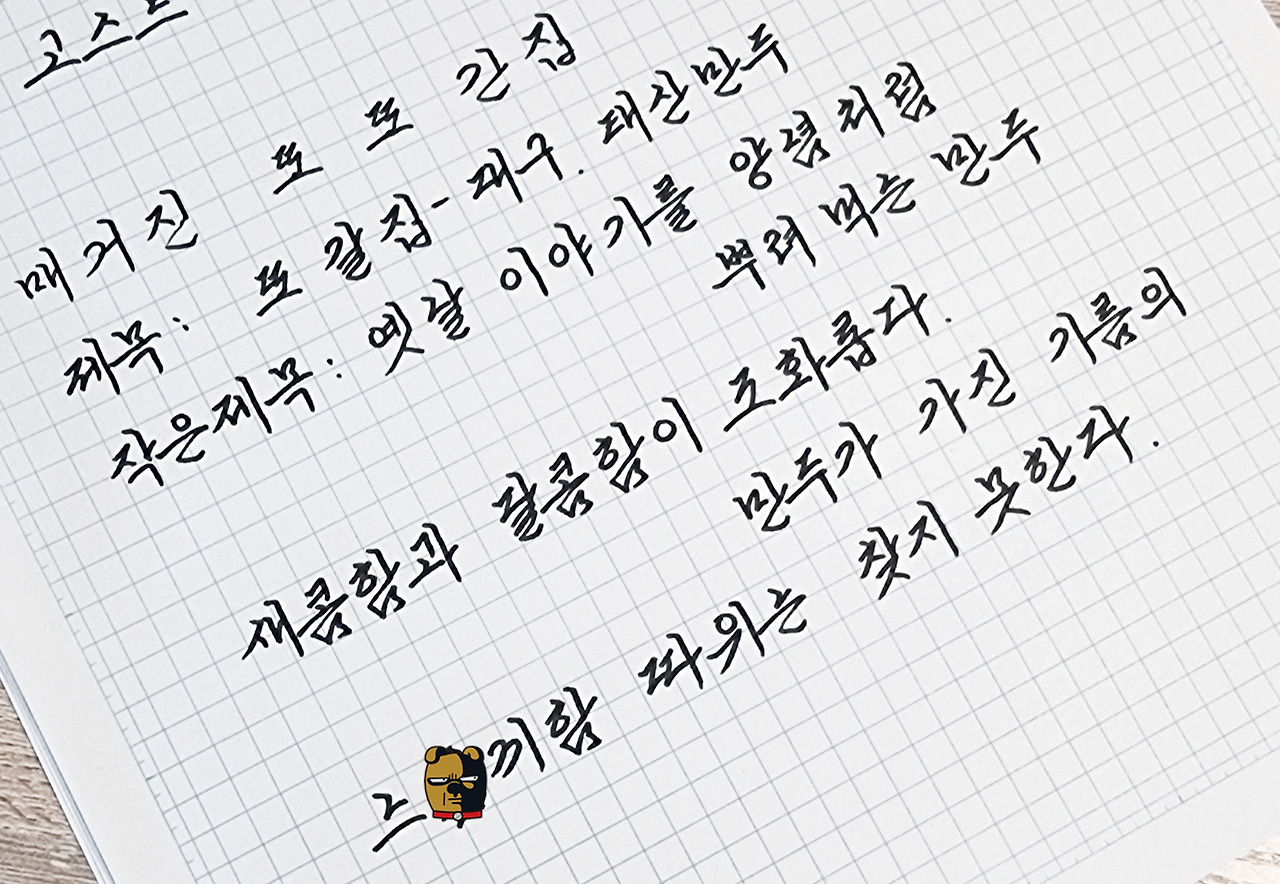 고스트
매거진 또 또 간집
제목: 또 갈집-대구. 태산만두
작은제목: 옛날 이야기를 양념처럼
뿌려 먹는 만두
새콤함과 달콤함이 조화롭다.
만두가 가진 기름의
느끼함 따위는 찾지 못한다.